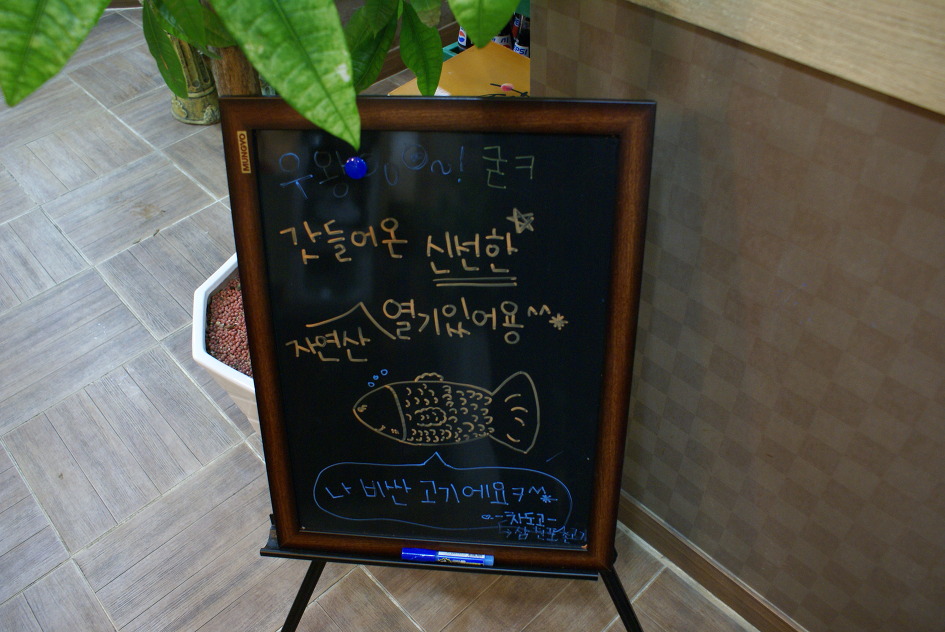 MUNGYO
우왕 굳ㅋ
갓들어온 신선한
자연산 열기있어용^^*
나 비싼 고기에요ㅋ^^*
-차도고-